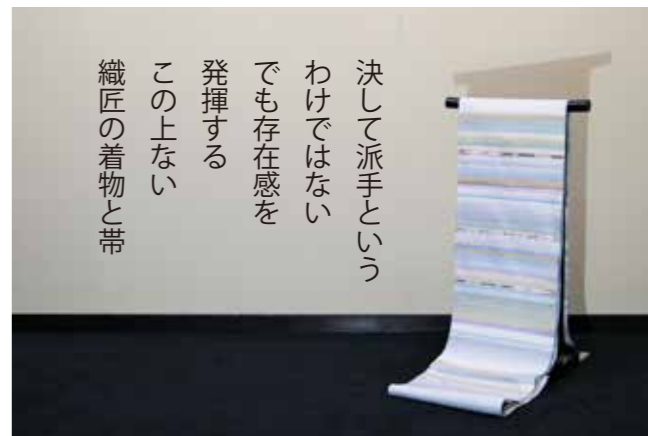 決して派手という
わけではない
でも存在感を
発揮する
この上ない
織匠の着物と帯